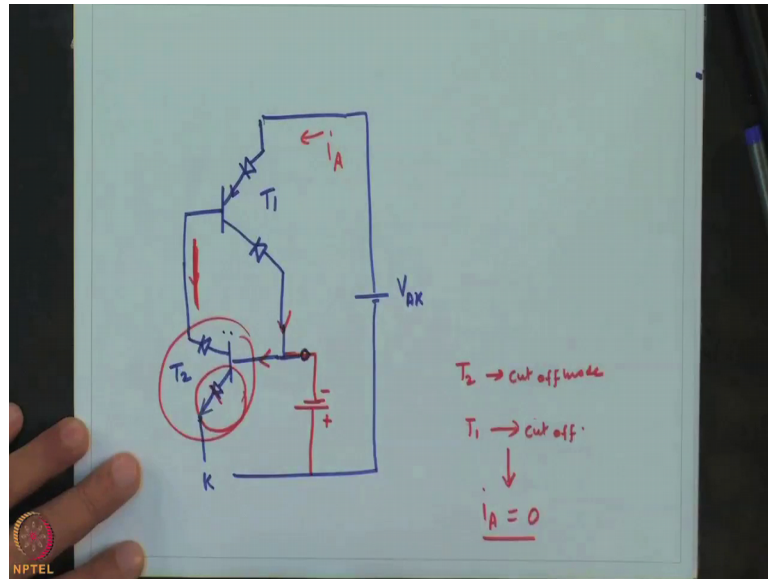 iA
T1
VAK
T2
-
+
K
T2 → cut off mode
T1 → cut off.
↓
iA = 0
NPTEL